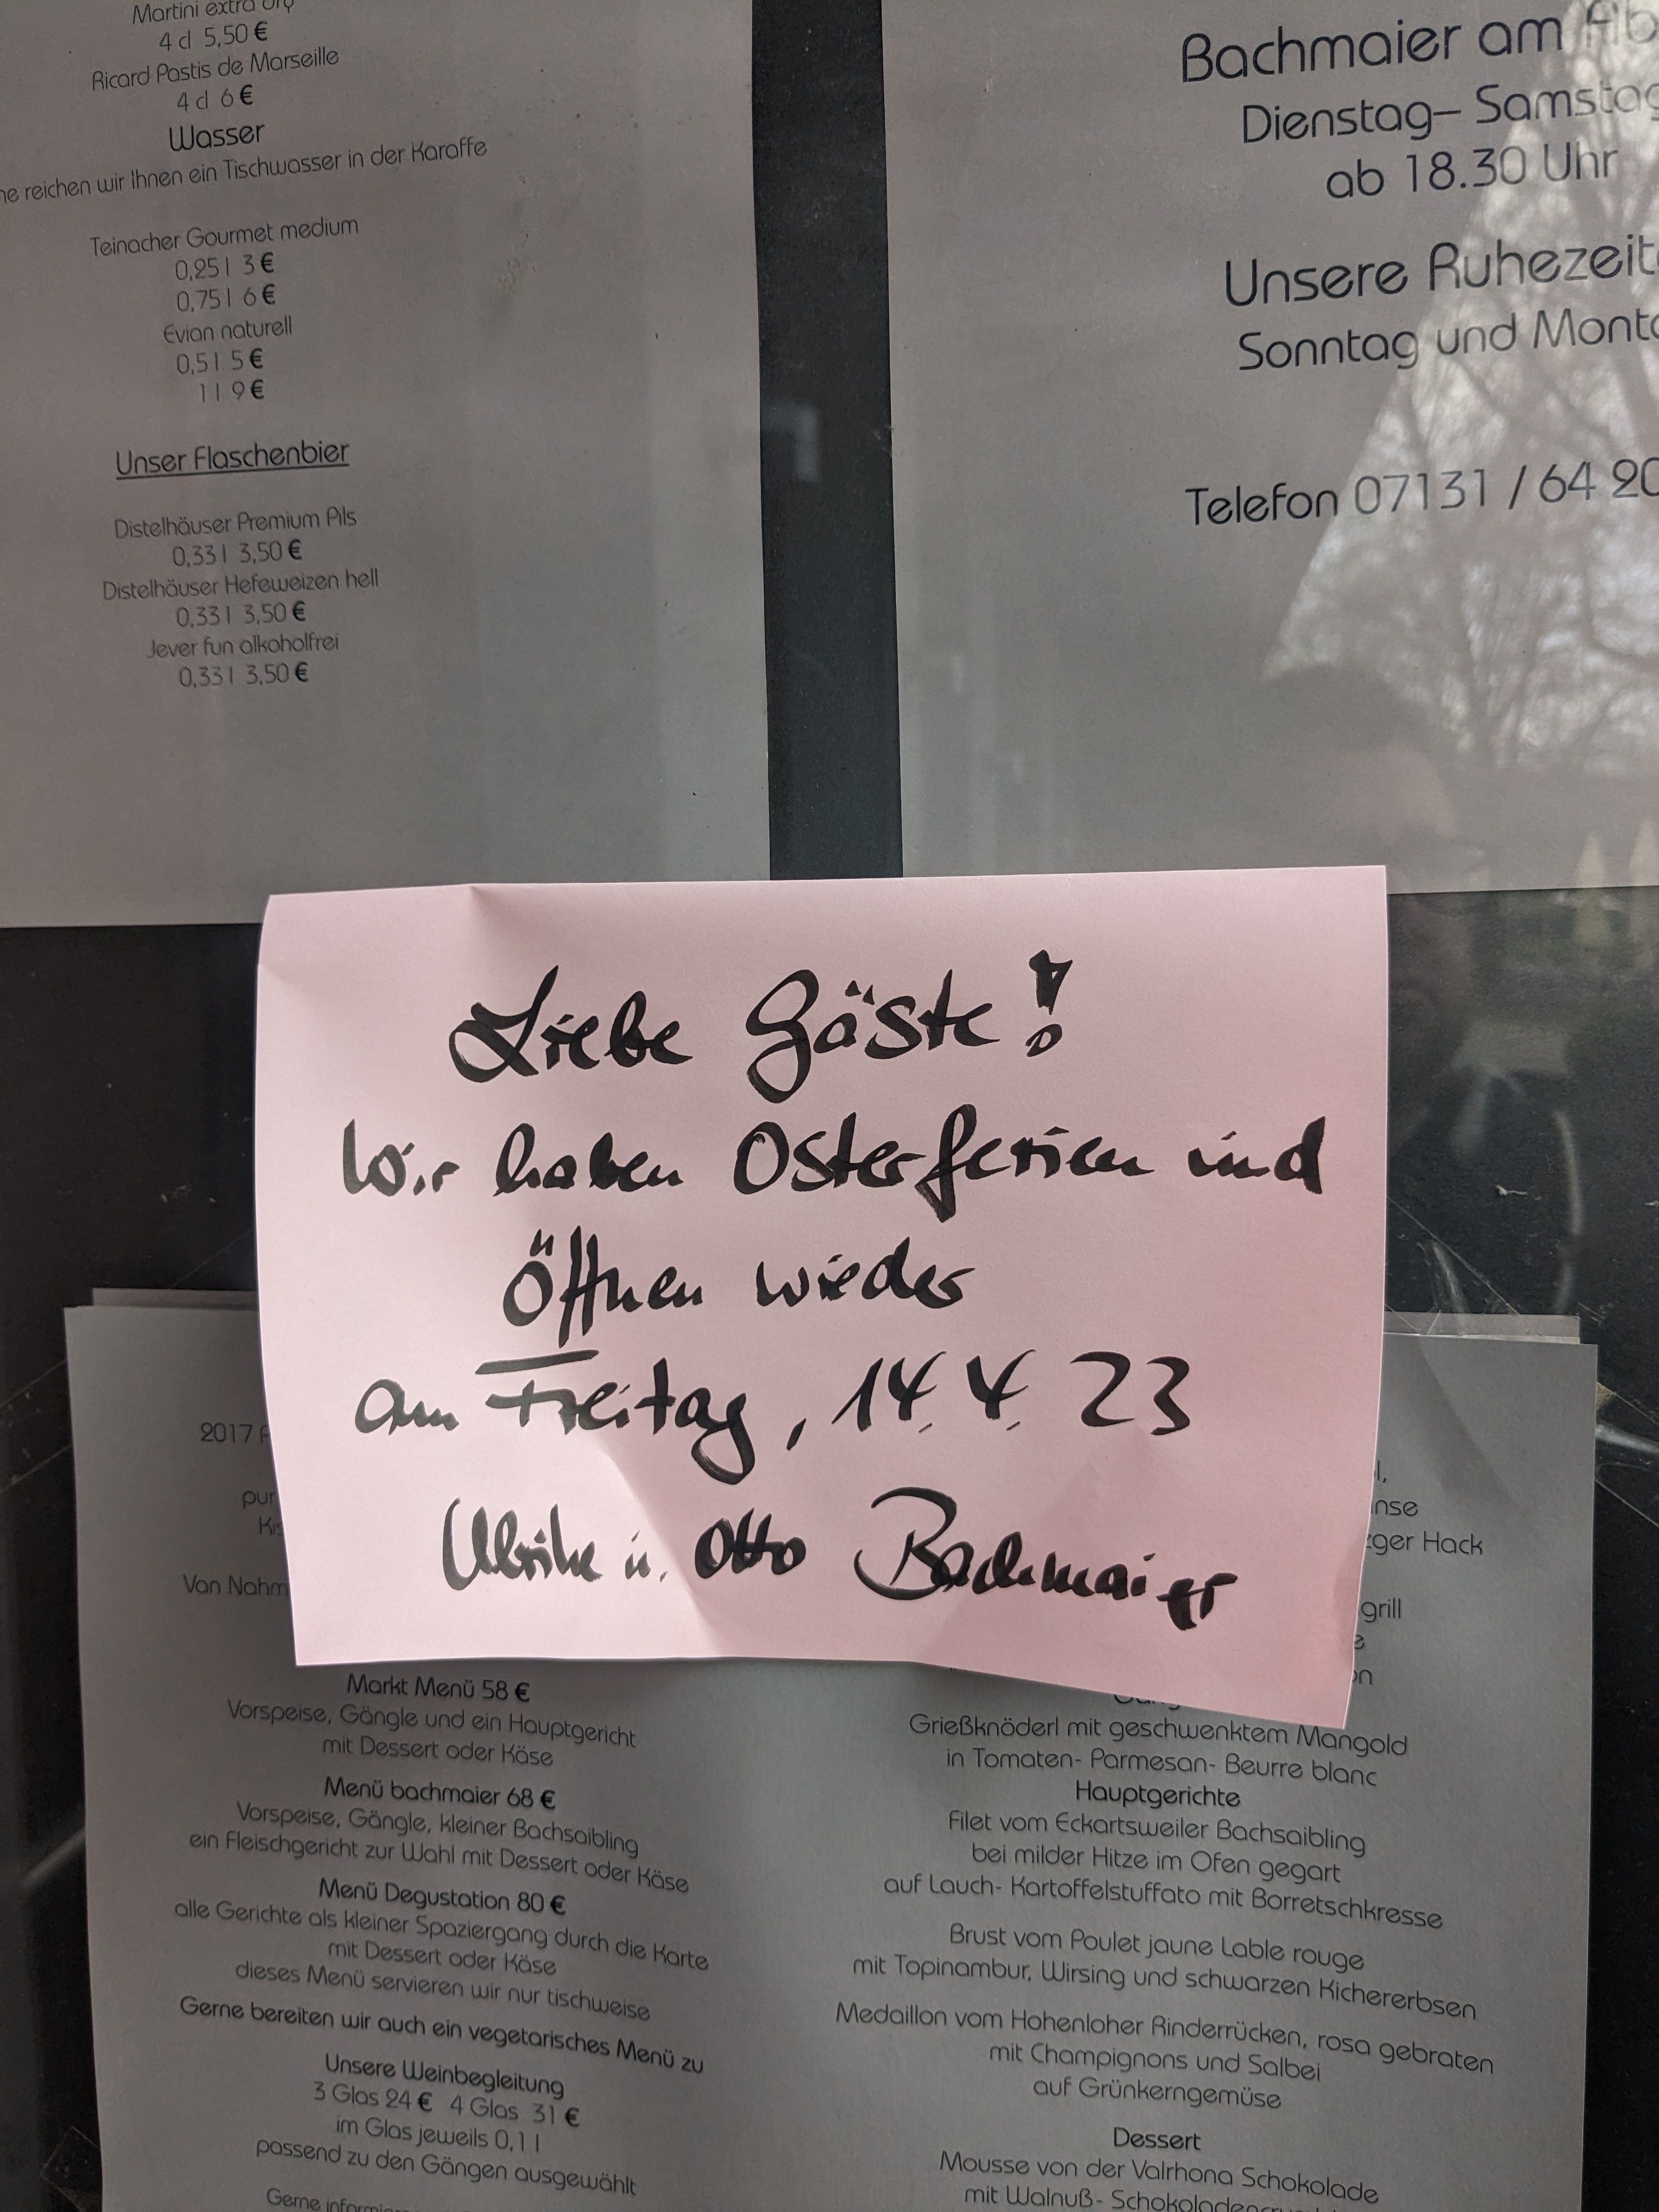 Martini extra dry
4 cl 5,50 €
Ricard Pastis de Marseille
4 cl 6 €
Wasser
reichen wir Ihnen ein Tischwasser in der Karaffe
Teinacher Gourmet medium
0,25 l 3 €
0,75 l 6 €
Evian naturell
0,5 l 5 €
1 l 9 €
Unser Flaschenbier
Distelhäuser Premium Pils
0,33 l 3,50 €
Distelhäuser Hefeweizen hell
0,33 l 3,50 €
Jever fun alkoholfrei
0,33 l 3,50 €
Bachmaier am
Dienstag– Samstag
ab 18.30 Uhr
Unsere
Sonntag und
Telefon 07131 / 64 20
Liebe Gäste!
Wir haben Osterferien und
Öffnen wieder
am Freitag, 14. 4. 23
Ulrike u. Otto Bachmaier
2017
Van Nahm
Markt Menü 58 €
Vorspeise, Gängle und ein Hauptgericht
mit Dessert oder Käse
Menü bachmaier 68 €
Vorspeise, Gängle, kleiner Bachsaibling
ein Fleischgericht zur Wahl mit Dessert oder Käse
Menü Degustation 80 €
alle Gerichte als kleiner Spaziergang durch die Karte
mit Dessert oder Käse
dieses Menü servieren wir nur tischweise
Gerne bereiten wir auch ein vegetarisches Menü zu
Unsere Weinbegleitung
3 Glas 24 € 4 Glas 31 €
im Glas jeweils 0,1 l
passend zu den Gängen ausgewählt
Gerne
nse
ger Hack
grill
Grießknöderl mit geschwenktem Mangold
in Tomaten- Parmesan- Beurre blanc
Hauptgerichte
Filet vom Eckartsweiler Bachsaibling
bei milder Hitze im Ofen gegart
auf Lauch- Kartoffelstuffato mit Borretschkresse
Brust vom Poulet jaune Lable rouge
mit Topinambur, Wirsing und schwarzen Kichererbsen
Medaillon vom Hohenloher Rinderrücken, rosa gebraten
mit Champignons und Salbei
auf Grünkerngemüse
Dessert
Mousse von der Valrhona Schokolade
mit Walnuß-